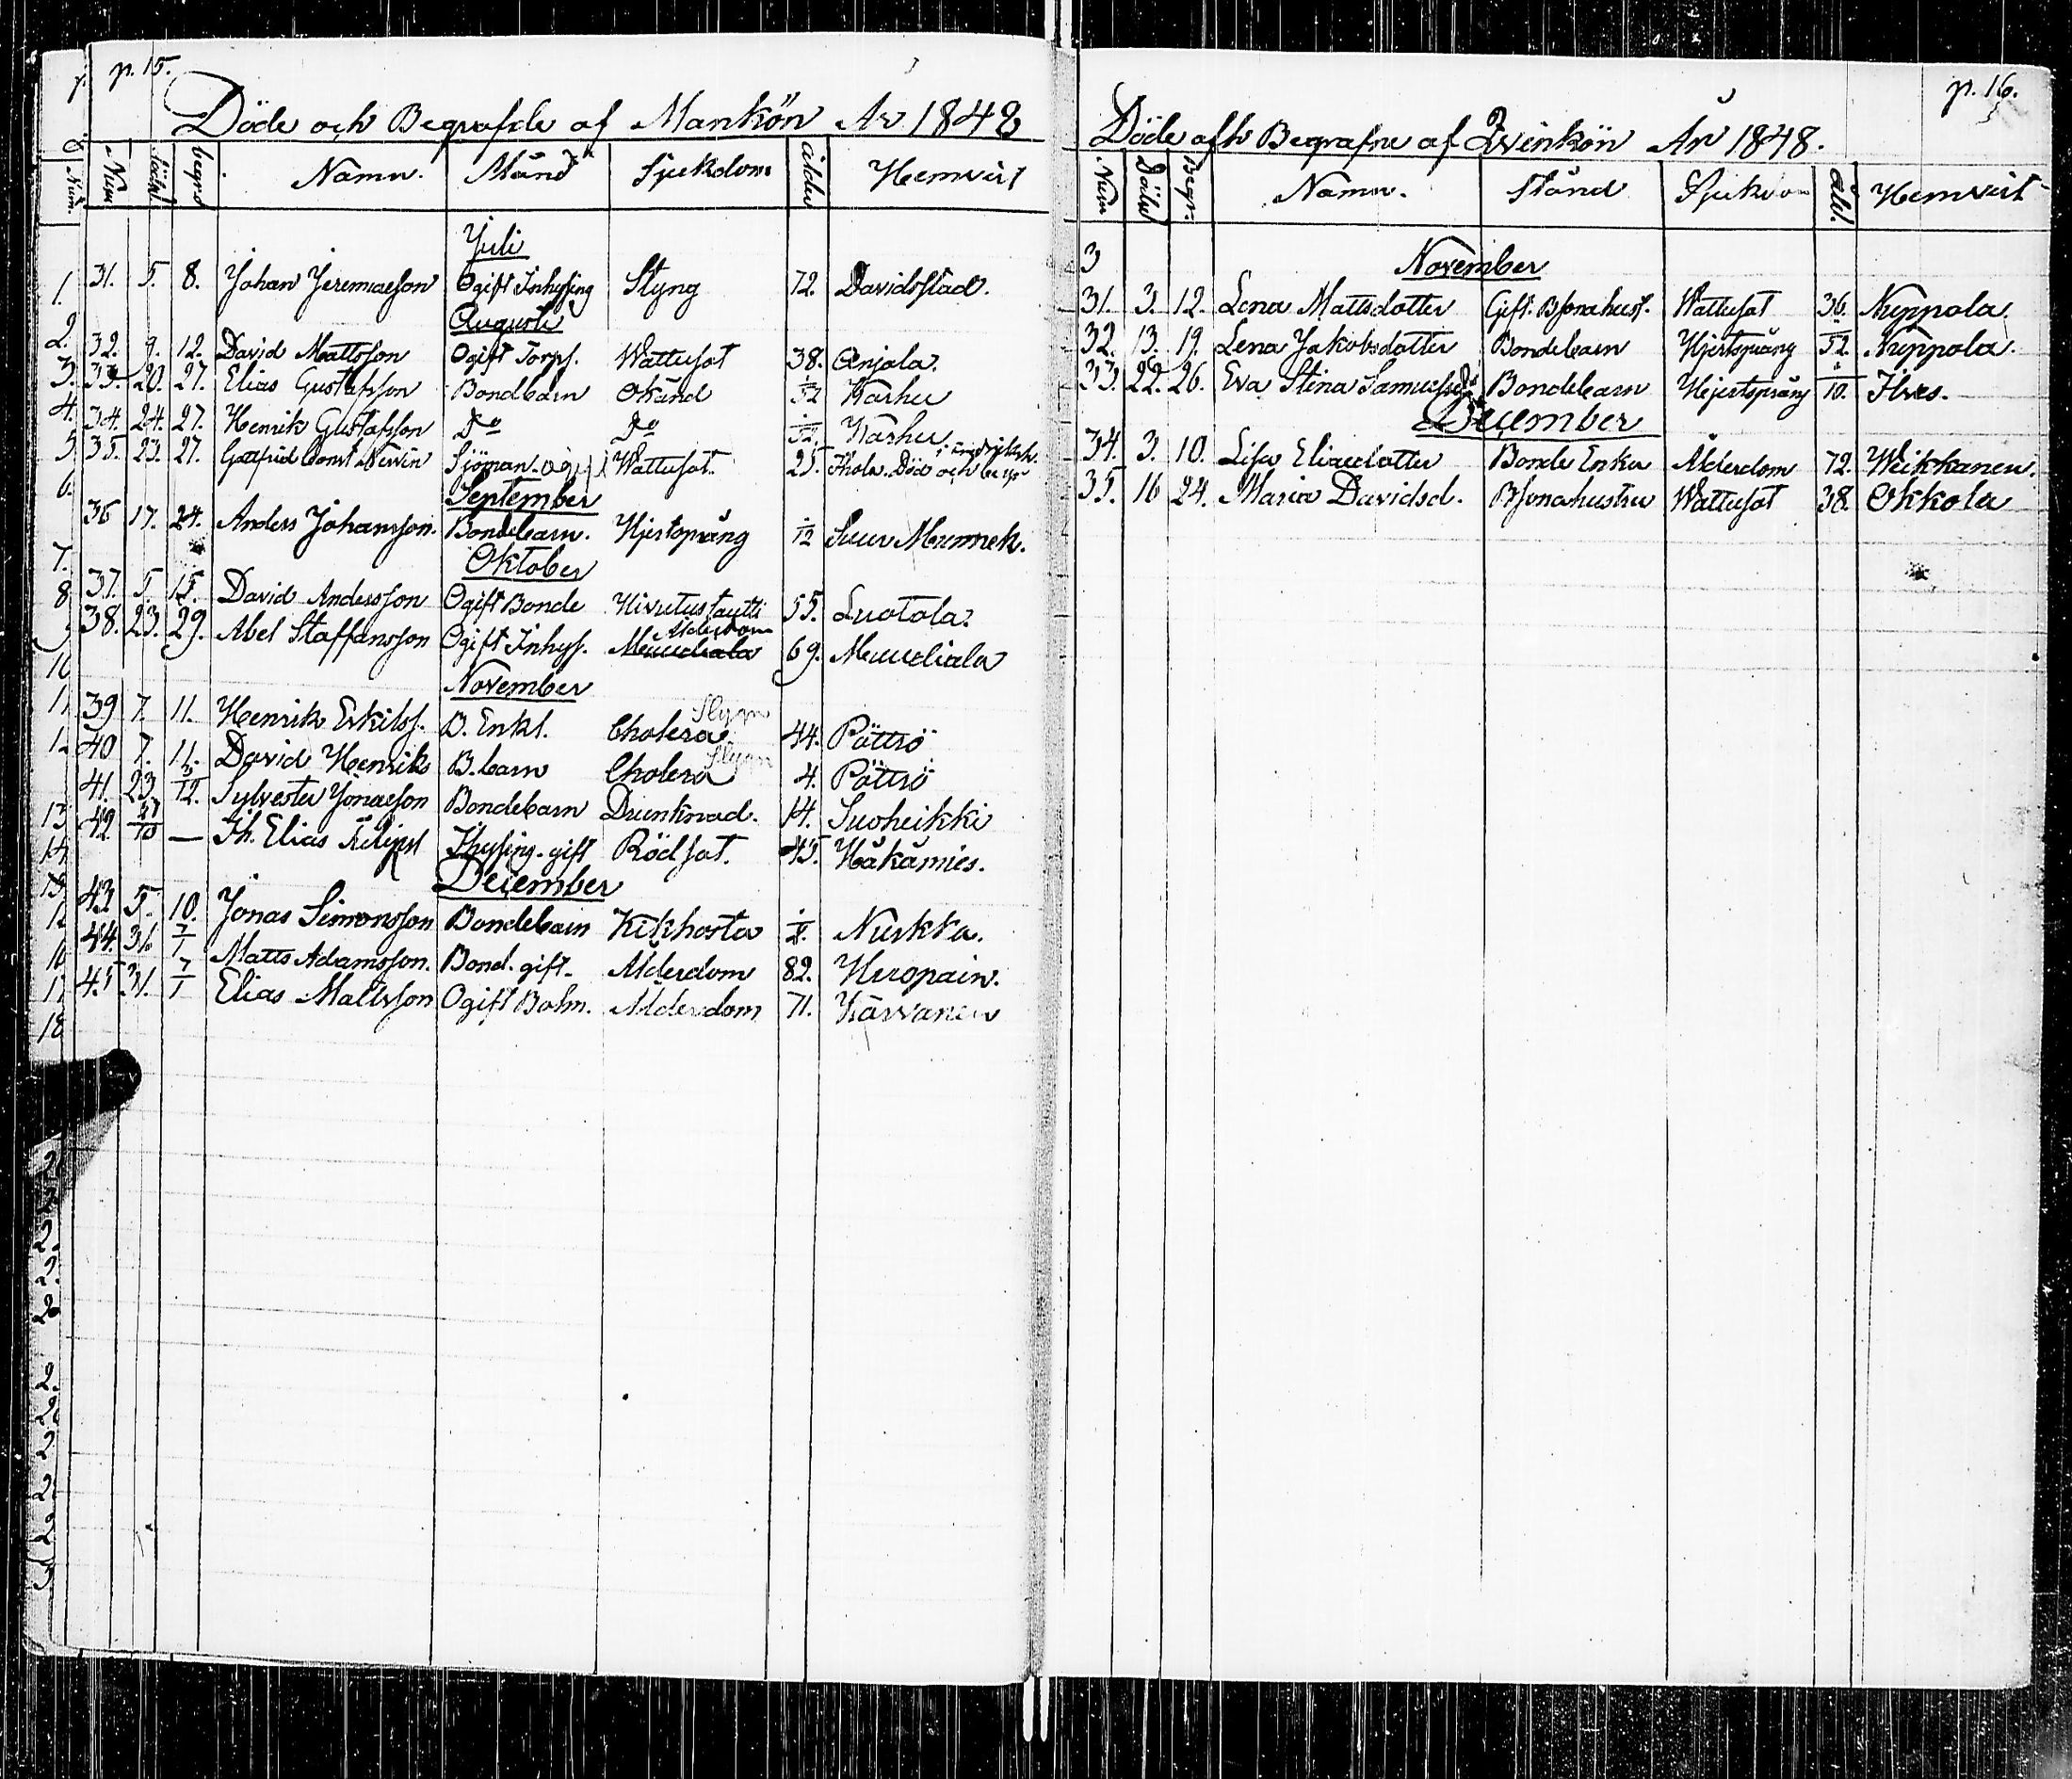 p. 15.
Döde och Begrafde af Mankön År 1848
Num Död begrd Namn. Stånd Sjukdom ålder Hemvist
Juli
31. 5. 8. Johan Jeremiaeson Ogift Inhysing Styng 72. Davidsstad.
Augusti
32. 9. 12. David Mattsson Ogift Torps. Wattusot 38. Anjala.
33. 20. 27. Elias Gustafsson Bondbarn Okänd 1/52 Karhu
34. 24. 27. Henrik Gustafsson Do Do 1/52 Karhu
35. 23. 27. Gottfrid Const Sjöman Wattusot. 25. Död och
September
36 17. 24. Anders Johansson. Bondebarn. Hjertsprång 1/12 Suur Mummek.
Oktober
37. 5. 15. David Andersson Ogift Bonde 55. Luotola.
38. 23. 29. Abel Staffansson Ogift Inhys. Muudiala Ålderdom 69. Muudiala
November
39 7. 11. Henrik Erkilss. B. Enkl. Cholera Slygn 44. Pöttrö
40 7. 11. David Henriks B. barn Cholera Slygn 4. Pöttrö
41. 23. 3/12. Sylvester Jonaeson Bondebarn Drunknad. 14. Suoheikki
42 27/10 — Th. Elias Filipst Ihysing. gift Rödsot. 45. Häkämies.
December
43 5. 10. Jonas Simonsson Bondebarn Kikhosta Nurkka.
44. 31. 7/1 Matts Adamsson. Bond. gift. Ålderdom 82. Hyropain.
45 31. 7/1 Elias Mattsson Ogift Ålderdom 71. Kärvanen
p. 16.
Döde och Begrafne af Qvinkön År 1848.
Num Död Begr. Namn. Stånd Sjukdom åld. Hemvist
3
November
31. 3. 12. Lena Mattsdotter Gift. Bsonahust. Wattusot 36. Nuppola.
32. 13. 19. Lena Jakobsdotter Bondebarn Hjertsprång 1/52. Nuppola.
33. 22. 26. Eva Stina Samuelsd. Bondebarn Hjertsprång 10. Ilves.
December
34. 3. 10. Lisa Eliaedotter Bonde Enka Ålderdom 72. Weikkanen.
35. 16 24. Maria Davidsd. Bsonahustru Wattusot 38. Okkola